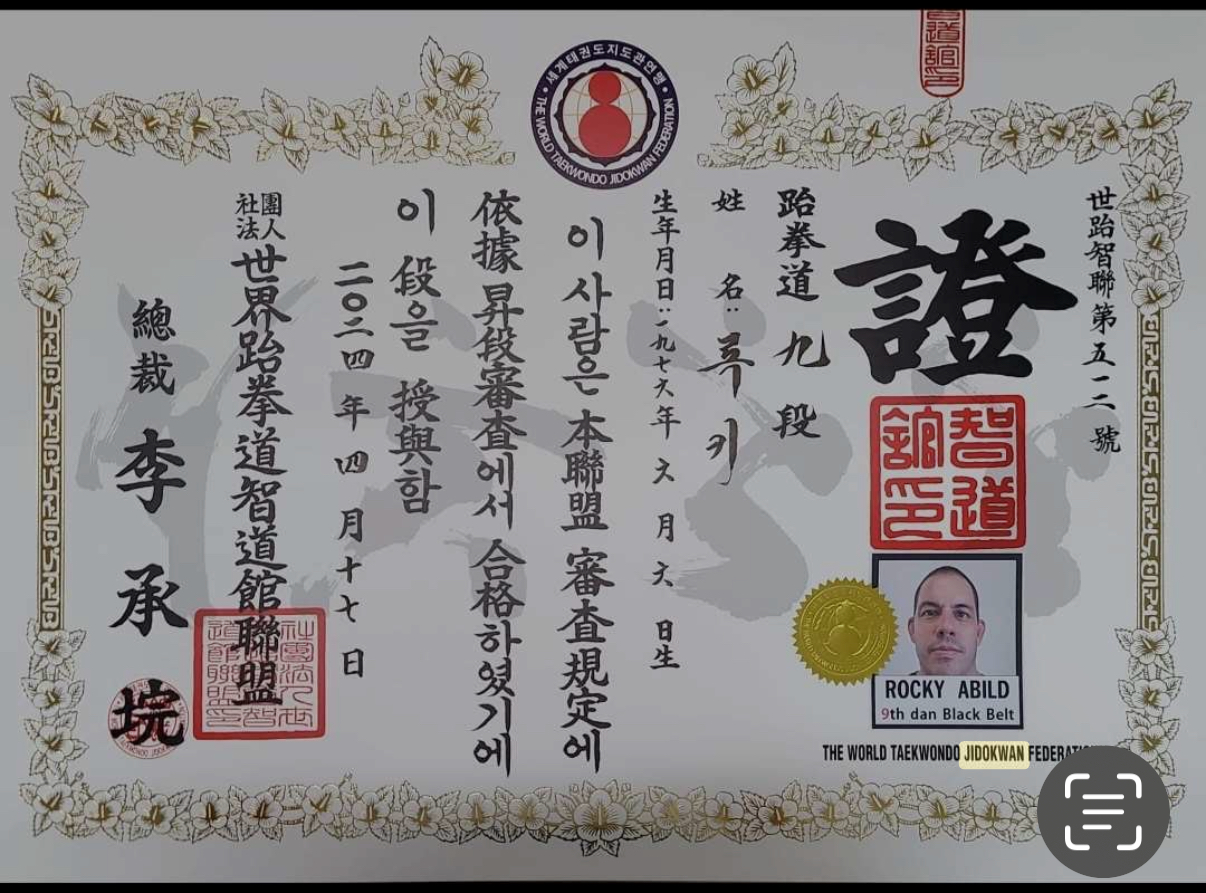 세계태권도지도관연맹
THE WORLD TAEKWONDO JIDOKWAN FEDERATION
世跆智聯第五二二號
證
智道館印
跆拳道 九段
姓名: 루키
生年月日: 一九七六年 六月 六日生
이 사람은 本聯盟 審査規定에
依據 昇段審査에서 合格하였기에
이 段을 授與함
二○二四年 四月十七日
社團法人 世界跆拳道智道館聯盟
總裁 李承垸
ROCKY ABILD
9th dan Black Belt
THE WORLD TAEKWONDO JIDOKWAN